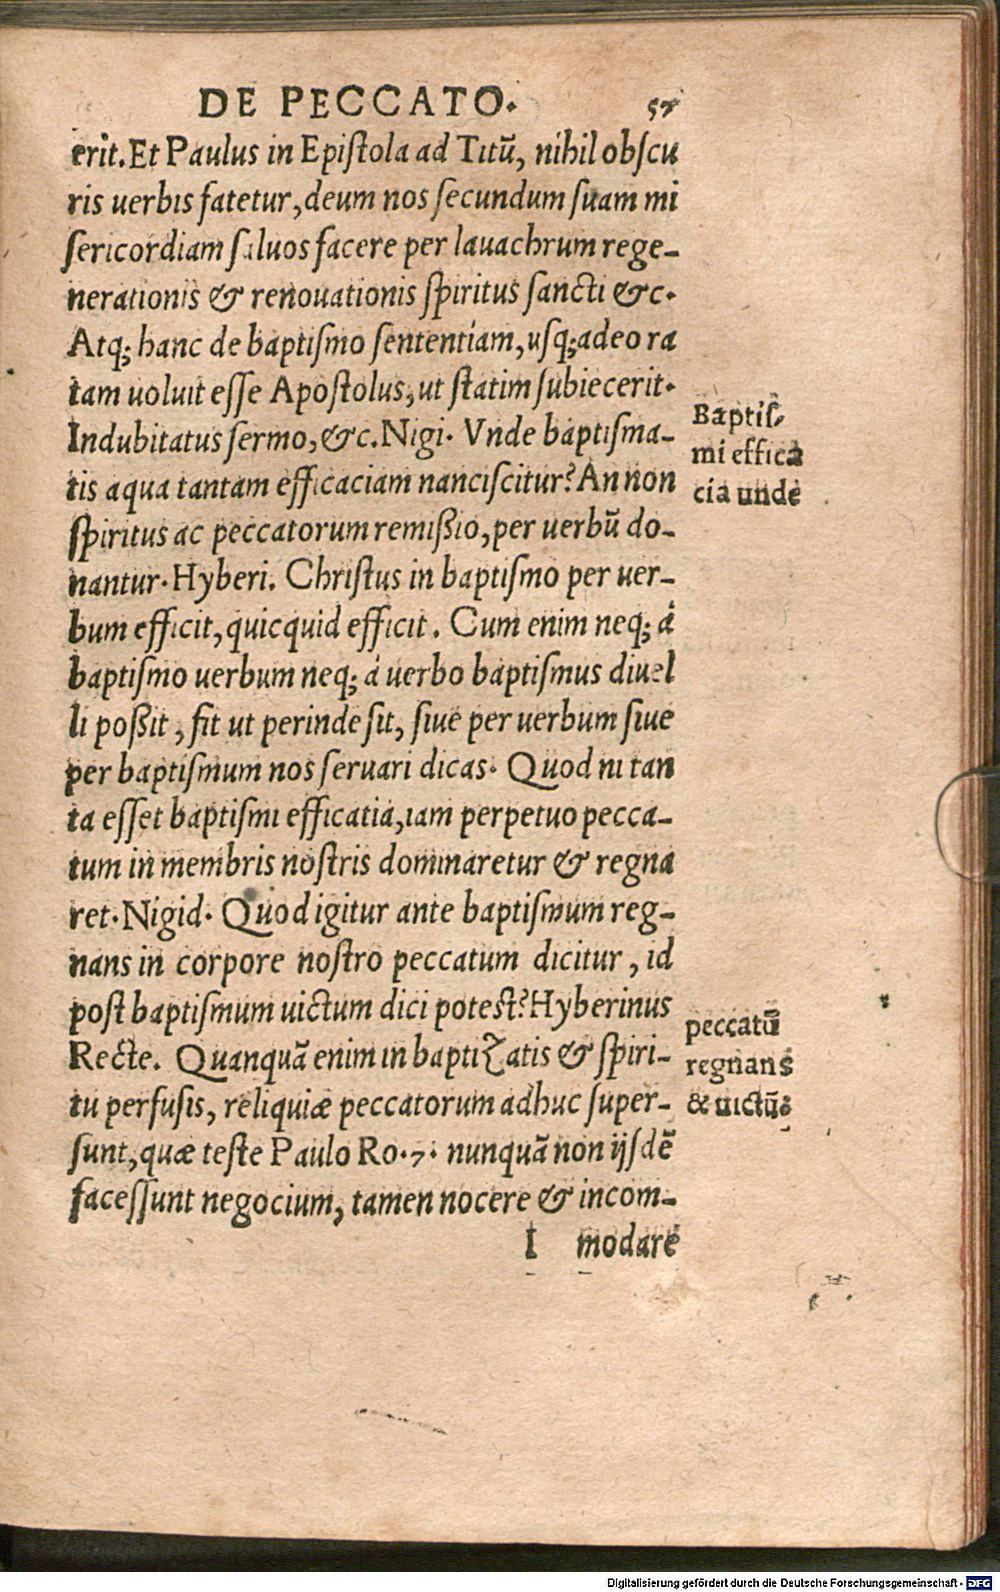 DE PECCATO. 57
erit. Et Paulus in Epiſtola ad Titū, nihil obſcu
ris uerbis fatetur, deum nos ſecundum ſuam mi
ſericordiam ſaluos facere per lauachrum rege-
nerationis & renouationis ſpiritus ſancti &c.
Atq; hanc de baptiſmo ſententiam, uſq; adeo ra
tam uoluit eſſe Apoſtolus, ut ſtatim ſubiecerit.
Indubitatus ſermo, &c. Nigi. Vnde baptiſma-
tis aqua tantam efficaciam nanciſcitur? An non
ſpiritus ac peccatorum remißio, per uerbū do-
nantur. Hyberi. Chriſtus in baptiſmo per uer-
bum efficit, quicquid efficit. Cum enim neq; à
baptiſmo uerbum neq; à uerbo baptiſmus diuel
li poßit, fit ut perinde ſit, ſiue per uerbum ſiue
per baptiſmum nos ſeruari dicas. Quod ni tan
ta eſſet baptiſmi efficatia, iam perpetuo pecca-
tum in membris noſtris dominaretur & regna
ret. Nigid. Quod igitur ante baptiſmum reg-
nans in corpore noſtro peccatum dicitur, id
poſt baptiſmum uictum dici poteſt? Hyberinus
Recte. Quanquā enim in baptizatis & ſpiri-
tu perfuſis, reliquiæ peccatorum adhuc ſuper-
ſunt, quæ teſte Paulo Ro. 7. nunquā non ijſdē
faceſſunt negocium, tamen nocere & incom-
I modare
Baptiſ-
mi effica
cia unde
peccatū
regnans
& uictū.
Digitalisierung gefördert durch die Deutsche Forschungsgemeinschaft - DFG